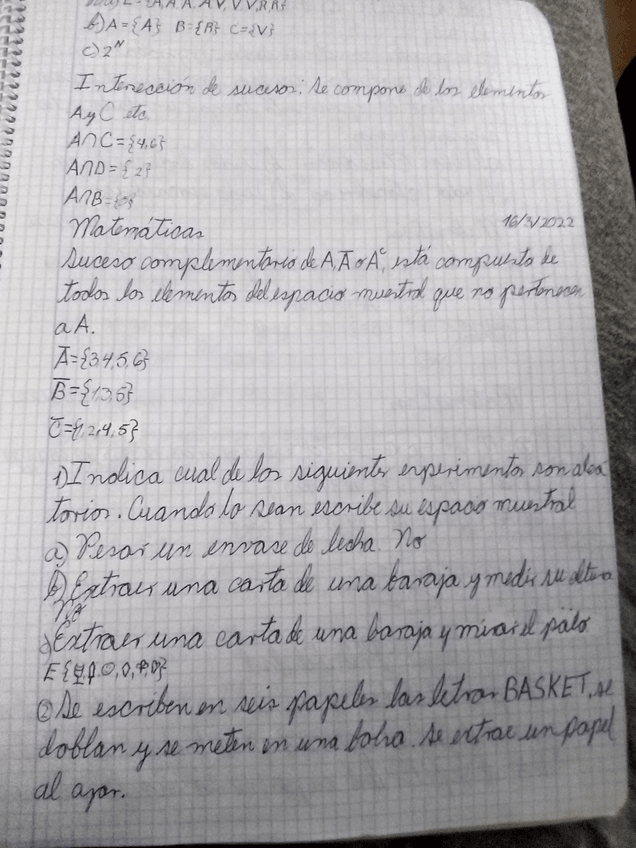 b) A={A} B={R} C={V}
c) 2ᴺ
Intersección de sucesos: se compone de los elementos
A y C etc.
A∩C={4,6}
A∩D={2}
A∩B=
Matemáticas 16/3/2022
Suceso complementario de A, Ā o Aᶜ, está compuesto de
todos los elementos del espacio muestral que no pertenecen
a A.
Ā={3,4,5,6}
B̄={1,3,5}
C̄={1,2,4,5}
1) Indica cual de los siguientes experimentos son alea
torios. Cuando lo sean escribe su espacio muestral
a) Pesar un envase de leche. No
b) Extraer una carta de una baraja y medir su altura
No
c) Extraer una carta de una baraja y mirar el palo
E
② Se escriben en seis papeles las letras BASKET, se
doblan y se meten en una bolsa. Se extrae un papel
al azar.